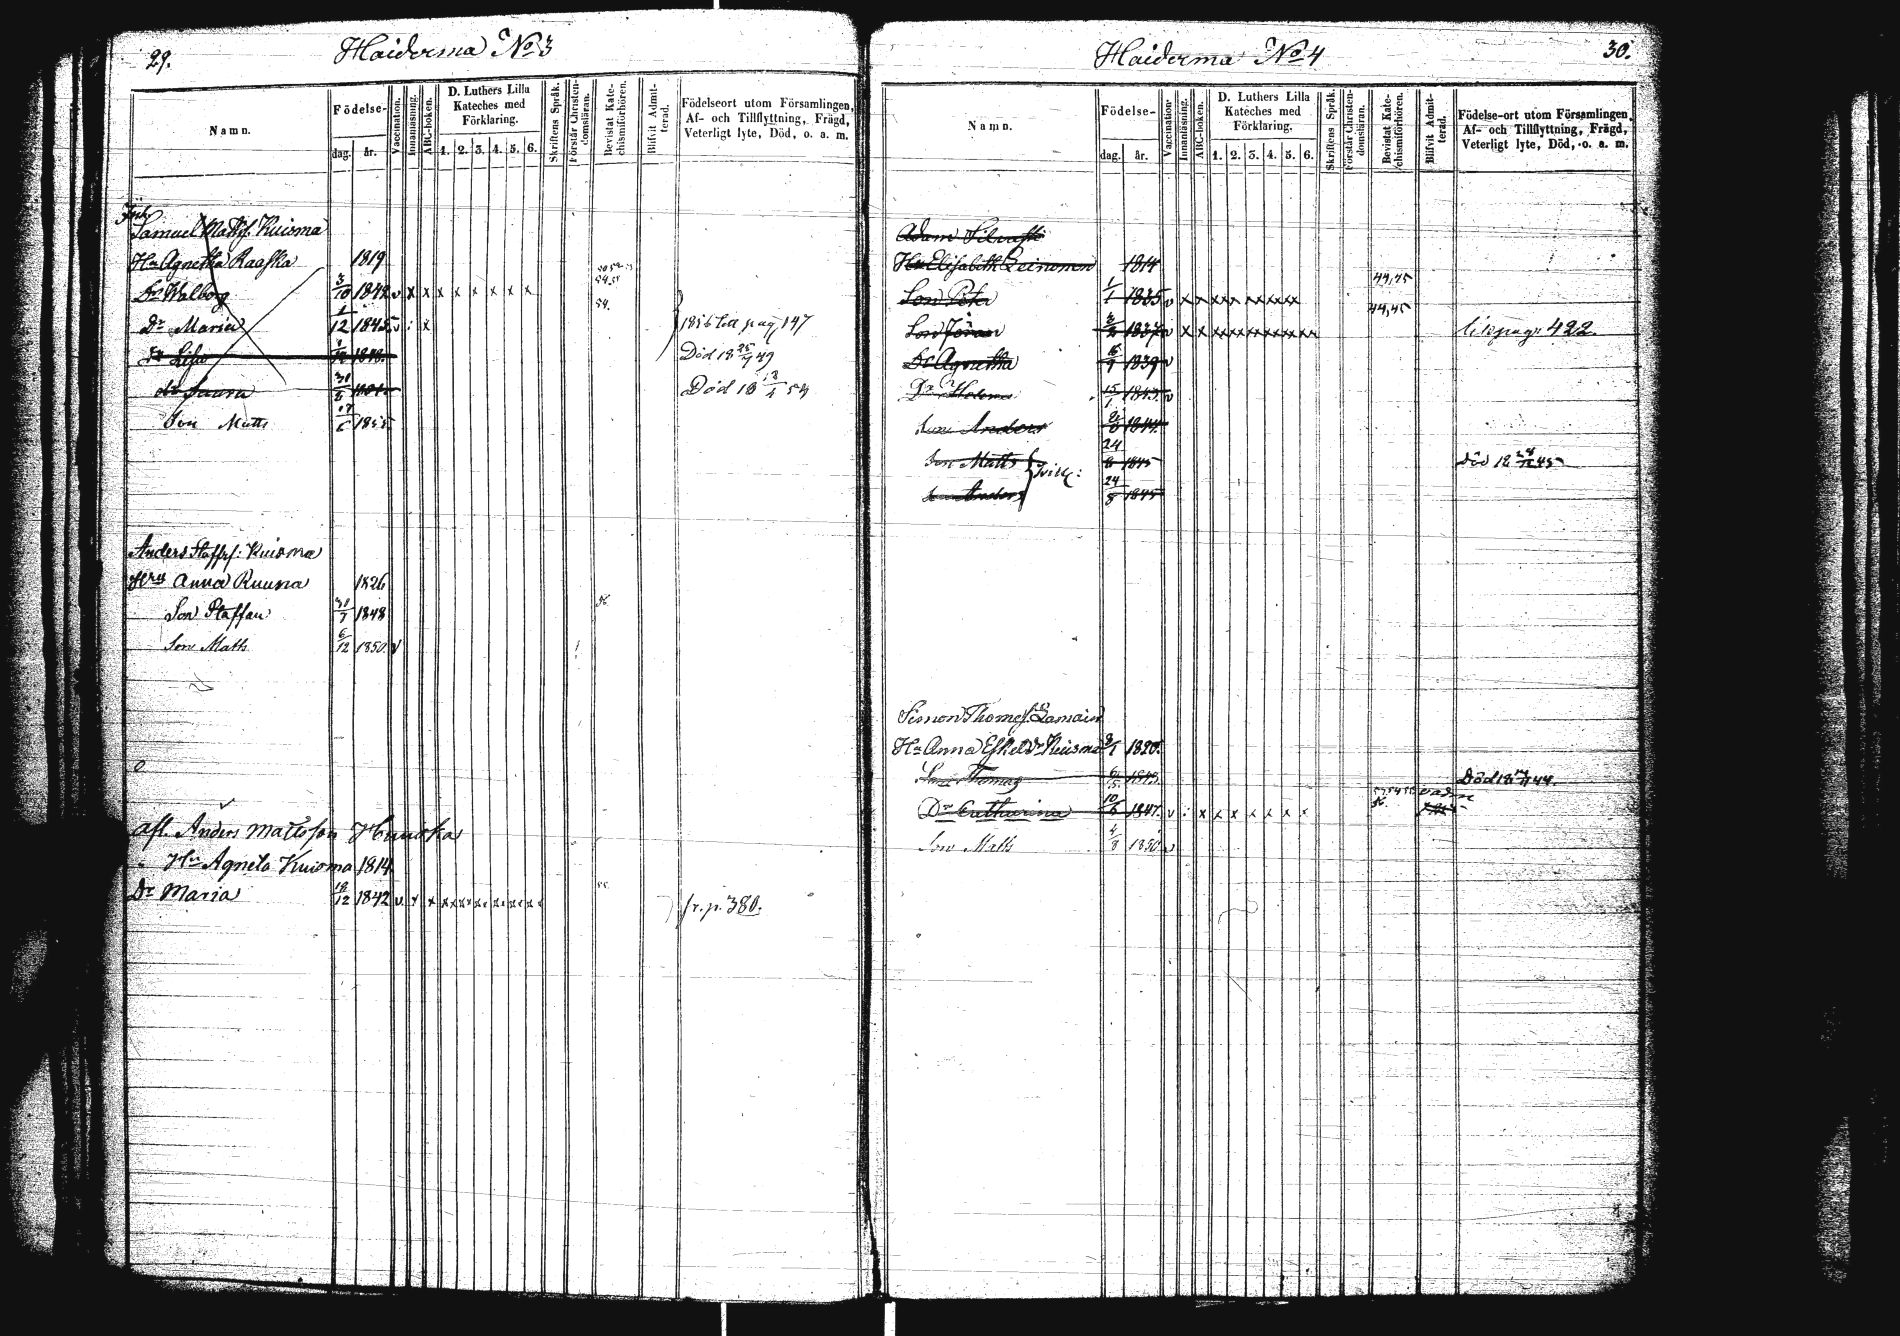 29.
Haiderma No 3
Namn.
Födelse-
dag.
år.
Vaccination.
Innanläsning.
ABC-boken.
D. Luthers Lilla
Kateches med
Förklaring.
1. 2. 3. 4. 5. 6.
Skriftens Språk.
Förstår Christen-
domsläran.
Bevistat Kate-
chismiförhören.
Blifvit Admit-
terad.
Födelseort utom Församlingen,
Af- och Tillflyttning, Frägd,
Veterligt lyte, Död, o. a. m.
Samuel Mattsf. Kuisma
Hu Agnetha Raaska 1819
Dr Walborg 3/10 1842 v x x x x x x x x
54.
Dr Maria 1/12 1845 v : x 1856 bel pag 147
Dr Lisa 1848. Död 18 25/7 49
dr Död 18 13/1 54
Son Matts 17/6 1855
Anders Staffsf: Kuisma
Hru Anna Ruuna 1826
Son Staffan 31/7 1848 56
Son Matts 6/12 1850. v
Afl. Anders Mattsson
Hu Agneta Kuisma 1814
Dr Maria 18/12 1842 v x x x x x x x x x x x fr. p. 380.
Haiderma No 4
30.
Namn.
Födelse-
dag.
år.
Vaccination
Innanläsning.
ABC-boken.
D. Luthers Lilla
Kateches med
Förklaring.
1. 2. 3. 4. 5. 6.
Skriftens Språk.
Förstår Christen-
domsläran.
Bevistat Kate-
chismiförhören.
Blifvit Admit-
terad.
Födelse-ort utom Församlingen,
Af- och Tillflyttning, Frägd,
Veterligt lyte, Död, o. a. m.
Adam
Hu Elisabeth Leinonen 1814
Son Peter 1/1 1835 v x x x x x x x x x x 44,45
Son Jöran 3/2 1837 v x x x x x x x x x x x 44,45 pag: 422.
Dr Agnetha 6/9 1839 v
Dr Helena 15/1 1843. v
Son Anders 1844.
Son Matts 24/8 1845 Död 18 24/12 45
Son Anders 24/8 1845
Simon Thomesf. Lamain
Hu Anna Eskelsdr Kuisma 3/1 1820.
Son Thomas 6/5 1843. Död 18 44.
Dr Catharina 10/6 1847. v : x x x x x x x 56.
Son Matts 4/8 1850 v